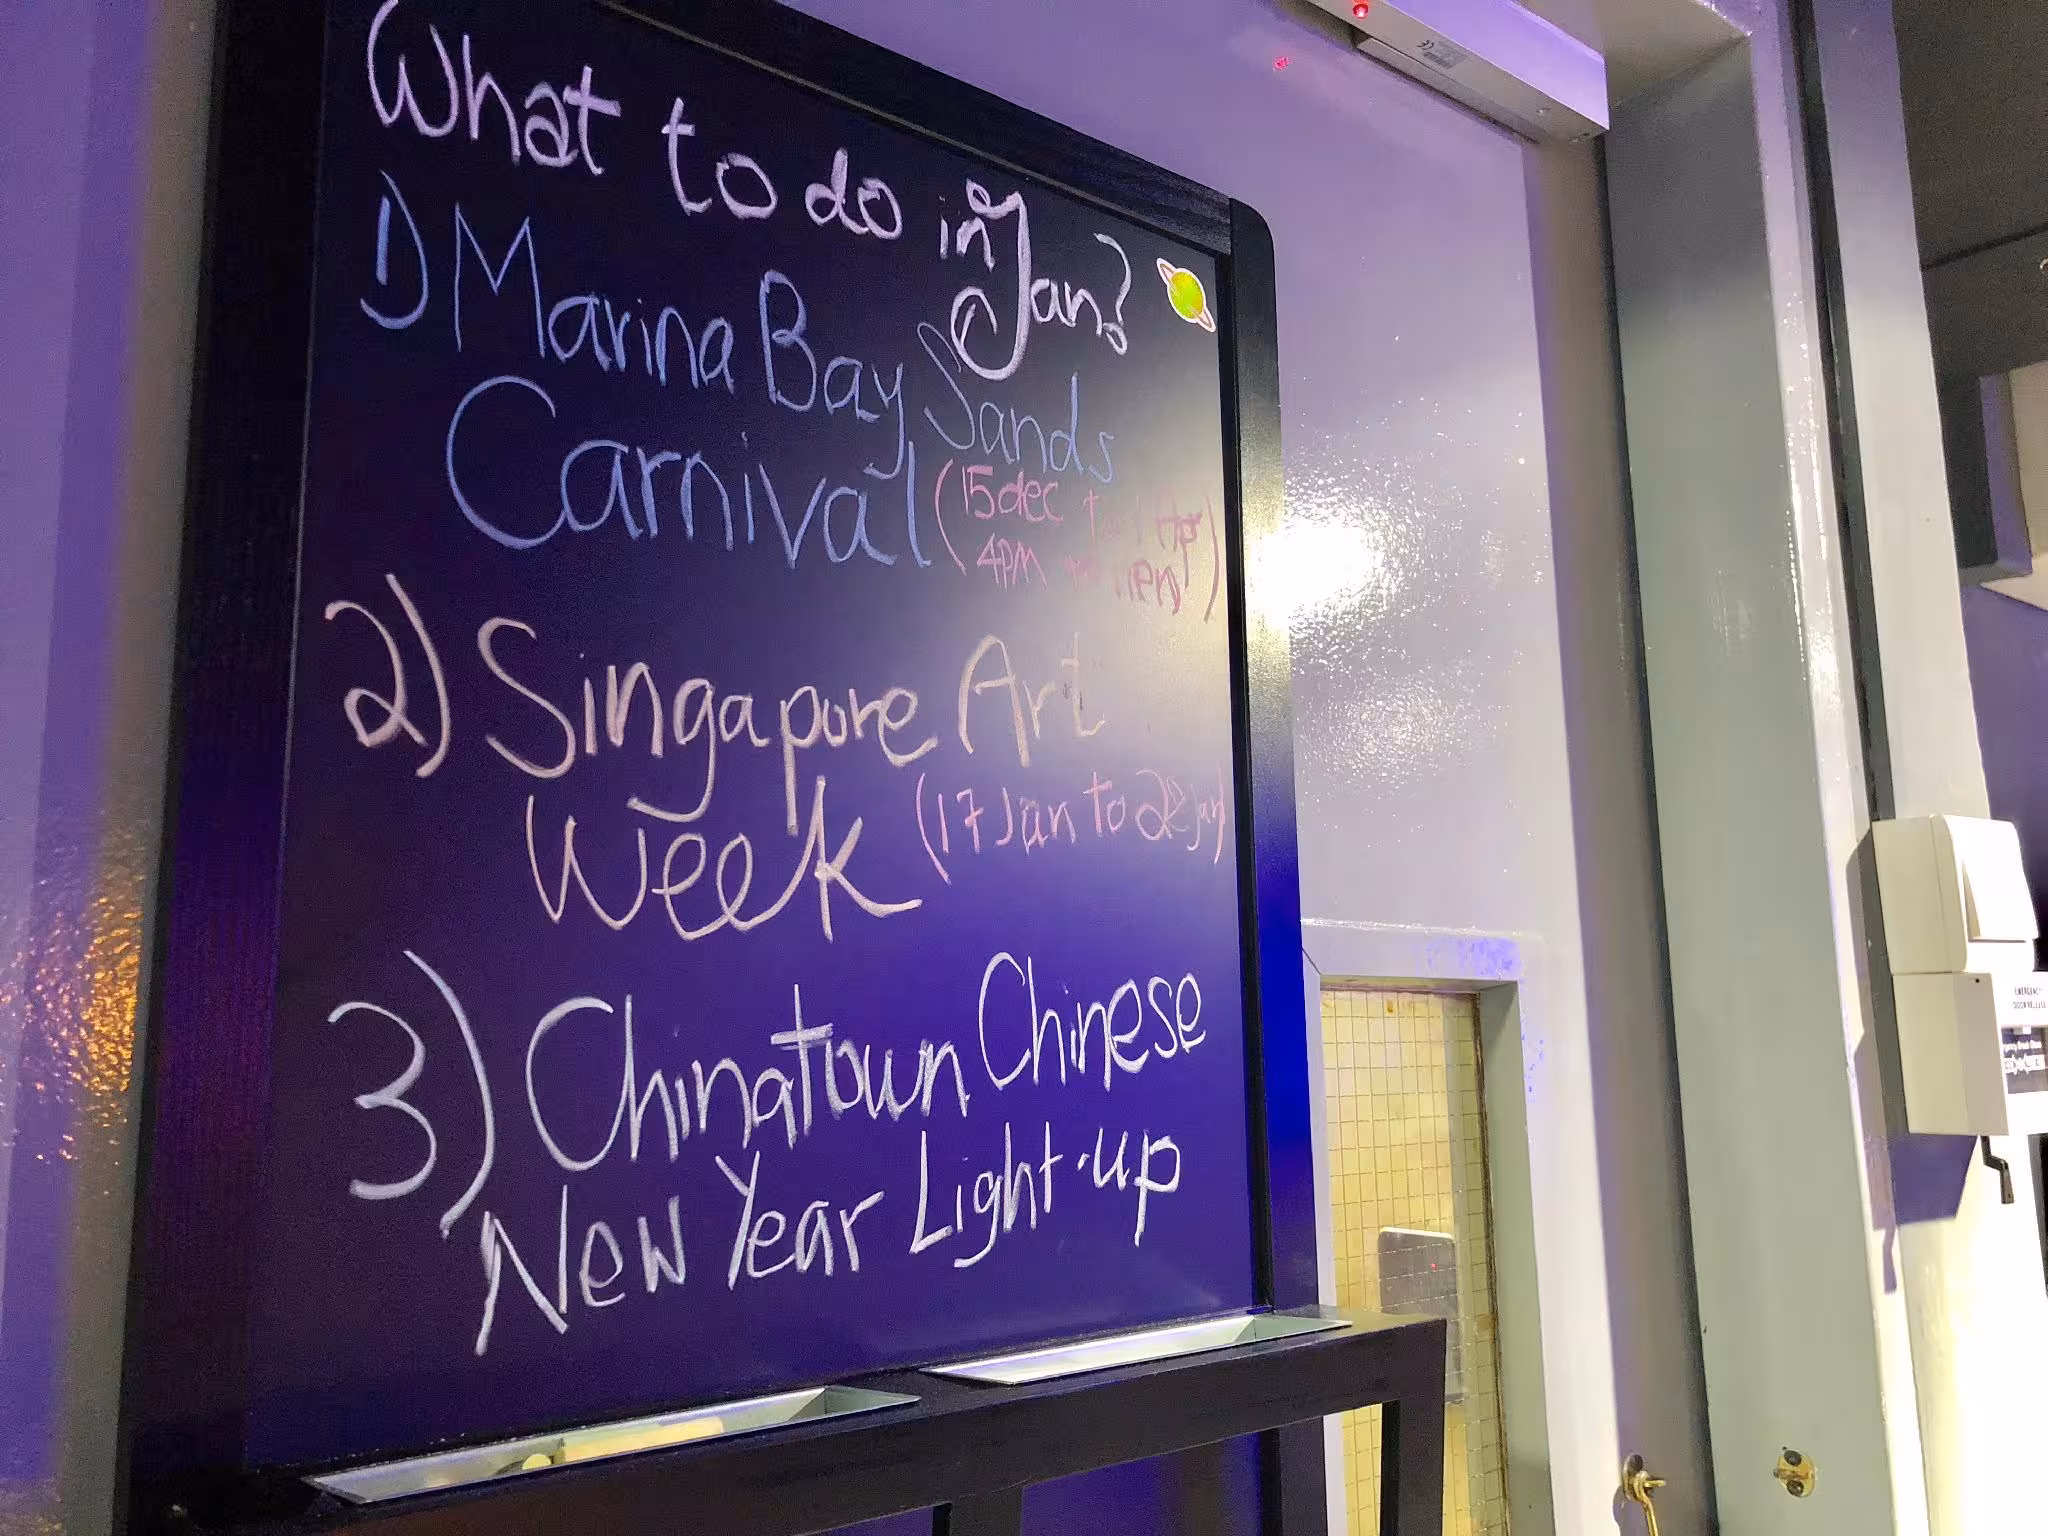 What to do in Jan?
1) Marina Bay Sands
Carnival (15 dec to 1 Apr
4PM
2) Singapore Art
Week (17 Jan to 28 Jan)
3) Chinatown Chinese
New Year Light-up
EMERGENCY
DOOR RELEASE